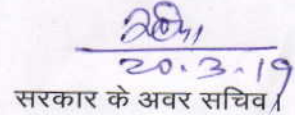 20.3.19
सरकार के अवर सचिव।